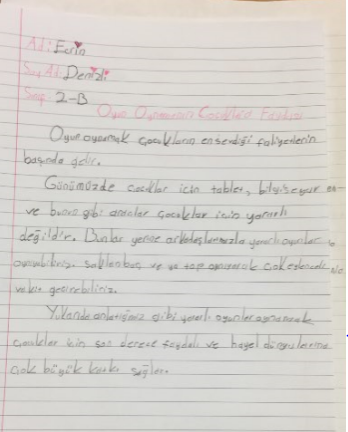 Adı: Ecrin
Soy Adı: Denizli
Sınıf: 2-B
Oyun Oynamanın Çocuklara Faydası
Oyun oynamak çocukların en sevdiği faliyetlerin
başında gelir.
Günümüzde çocuklar için tablet, bilgisayar
ve buna gibi çocuklar için yararlı
değildir. Bunlar yerine arkadaşlarımızla oyunlar
oynayabiliriz. saklanbaç ve ya top oynayarak çok
vakit geçirebiliriz.
Yukarıda gibi yararlı oyunlar oynamak
çocuklar için son derece faydalı ve hayal dünyalarına
çok büyük katkı sağlar.